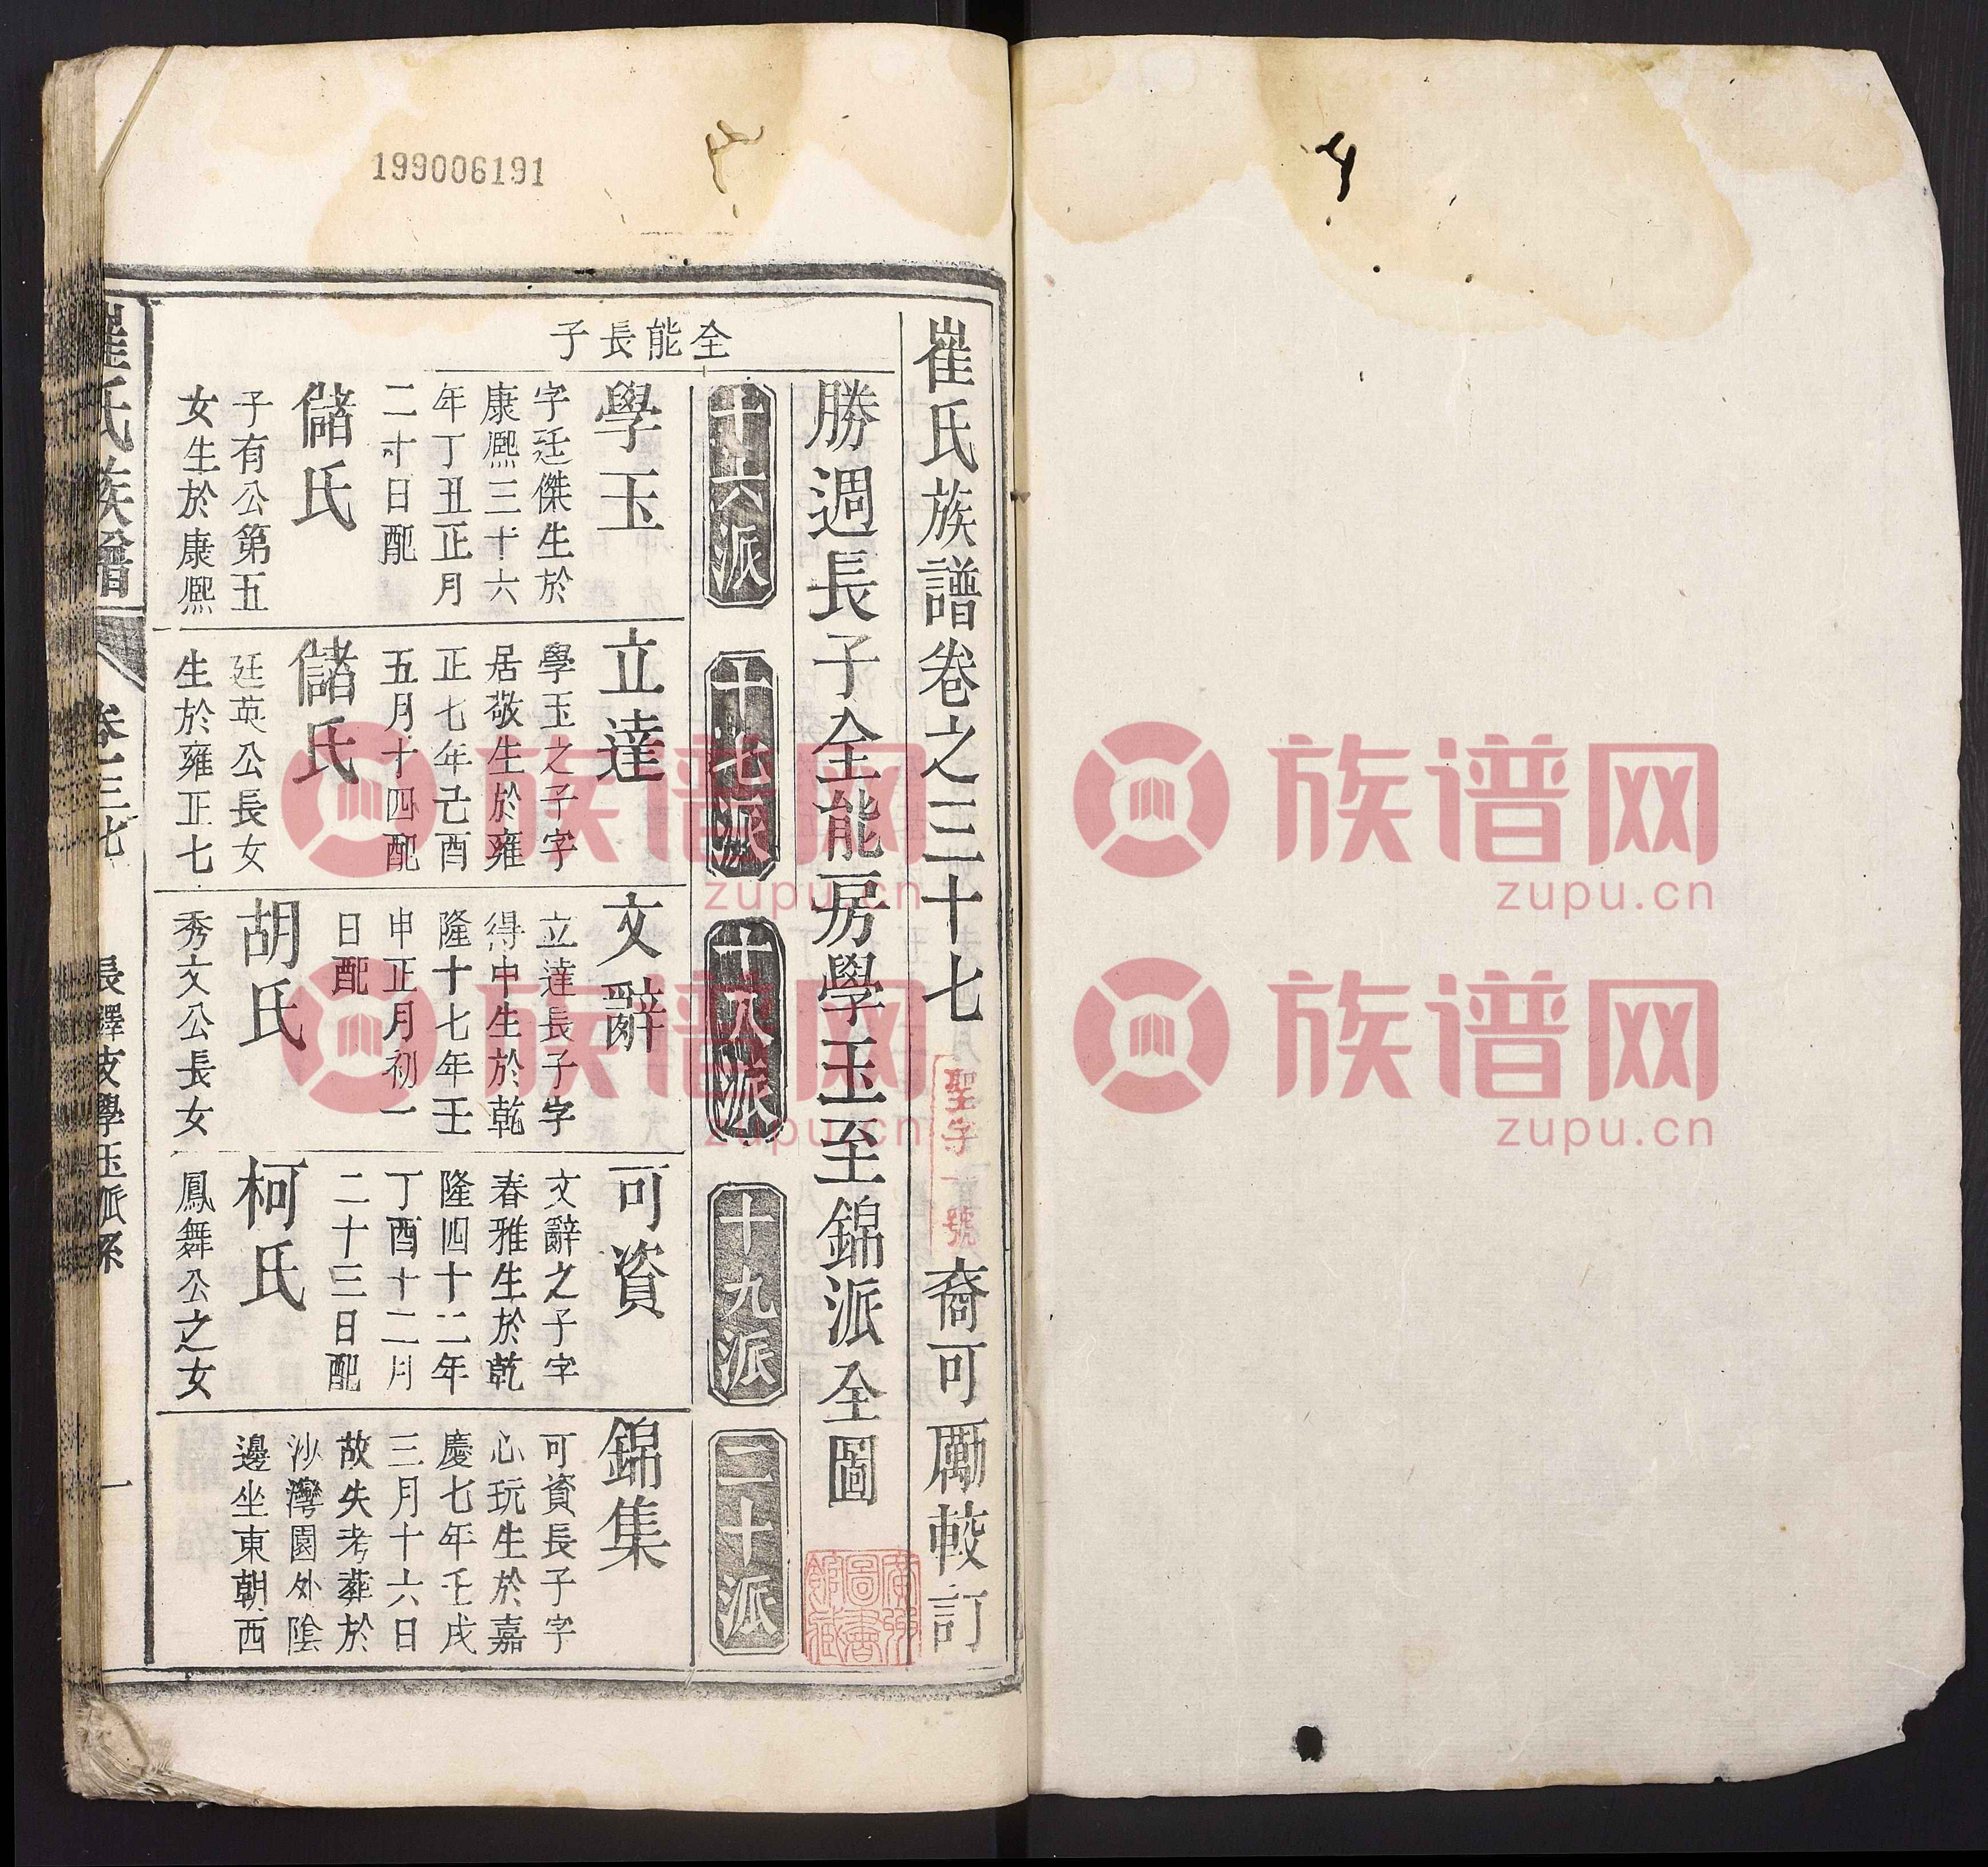 199006191
崔氏族譜卷之三十七
聖字一號
裔可勵較訂
勝週長子全能房學玉至錦派全圖
安徽
圖書
館藏
十六派
十七派
十八派
十九派
二十派
全能長子
學玉
字廷傑生於
康熙三十六
年丁丑正月
二十日配
儲氏
子有公第五
女生於康熙
立達
學玉之子字
居敬生於雍
正七年己酉
五月十四配
儲氏
廷英公長女
生於雍正七
文辭
立達長子字
得中生於乾
隆十七年壬
申正月初一
日配
胡氏
秀文公長女
可資
文辭之子字
春雅生於乾
隆四十二年
丁酉十二月
二十三日配
柯氏
鳳舞公之女
錦集
可資長子字
心玩生於嘉
慶七年壬戌
三月十六日
故失考葬於
沙灣園外陰
邊坐東朝西
崔氏族譜
卷三七
長譯皮學玉派系
一
族谱网
zupu.cn
族谱网
zupu.cn
族谱网
zupu.cn
族谱网
zupu.cn